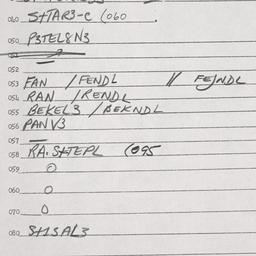 040 S+TAR3-C (060
050 P3TEL8N3
052
053 FAN / FENDL // FEJNDL
054 RAN / RENDL
055 BEKEL3 / BEKNDL
056 PANV3
057
058 RA.S+TEPL (095
059 O
060 O
070 O
080 S+1SAL3